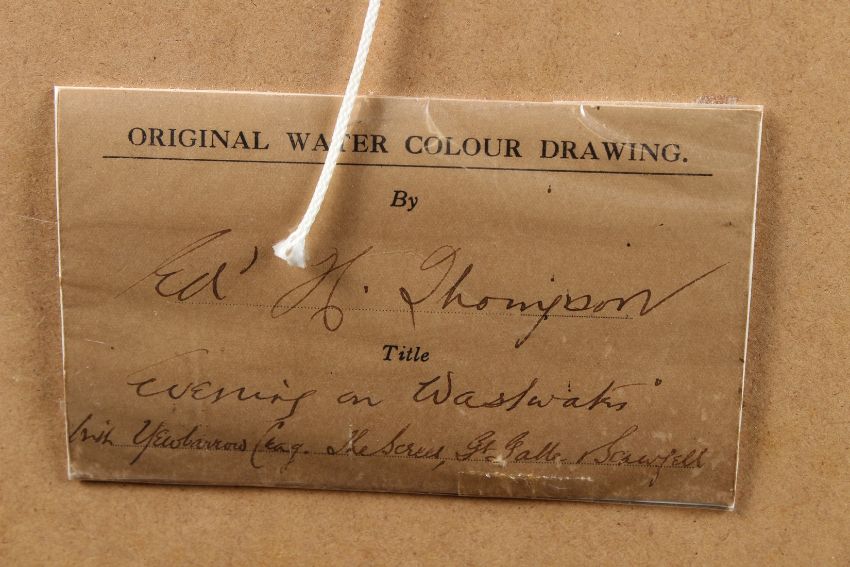 ORIGINAL WATER COLOUR DRAWING.
By
Ed' H. Thompson
Title
Evening on Wastwater"
with Yewbarrow Crag. The Screes, Gt. Gable & Scawfell